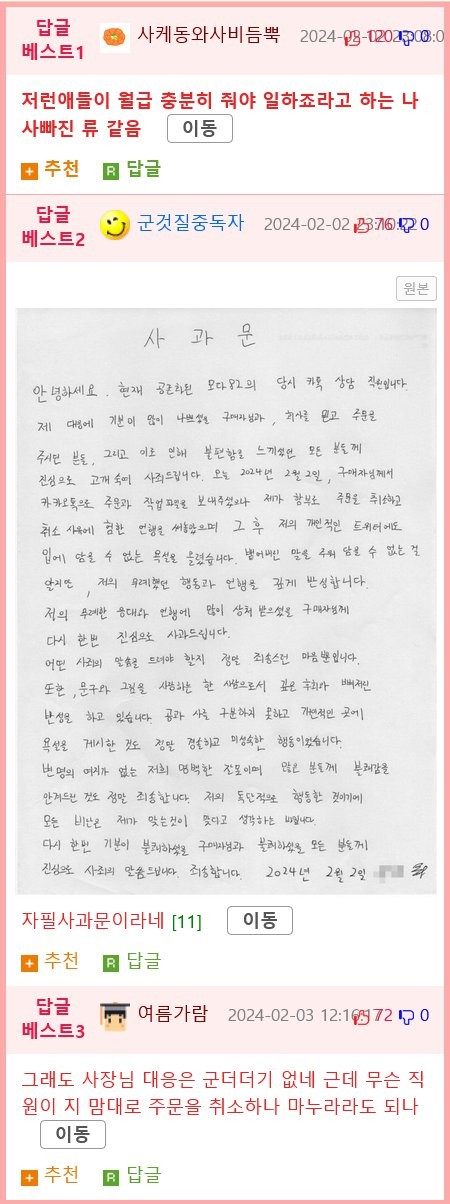 답글
베스트1
사케동와사비듬뿍
2024-02-02
120
0
저런애들이 월급 충분히 줘야 일하죠라고 하는 나
사빠진 류 같음
이동
추천
R 답글
답글
베스트2
군것질중독자
2024-02-02 23:10:22
76
0
원본
사 과 문
안녕하세요. 현재 공론화된 모다82의 당시 카톡 상담 직원입니다.
제 대응에 기분이 많이 나쁘셨을 구매자님과, 회사를 믿고 주문을
주시던 분들, 그리고 이로 인해 불편함을 느끼셨던 모든 분들께
진심으로 고개 숙여 사죄드립니다. 오늘 2024년 2월 2일, 구매자님께서
카카오톡으로 주문과 작업파일을 보내주셨으나 제가 함부로 주문을 취소하고
취소 사유에 험한 언행을 써놓았으며 그 후 저의 개인적인 트위터에도
입에 담을 수 없는 욕설을 올렸습니다. 뱉어내진 말을 주워 담을 수 없는 걸
알지만, 저의 무례했던 행동과 언행을 깊게 반성합니다.
저의 무례한 응대와 언행에 많이 상처 받으셨을 구매자님께
다시 한번 진심으로 사과드립니다.
어떤 사죄의 말씀을 드려야 할지 정말 죄송스런 마음뿐입니다.
또한, 문구와 그림을 사랑하는 한 사람으로서 깊은 후회와 뼈저린
반성을 하고 있습니다. 공과 사를 구분하지 못하고 개인적인 곳에
욕설을 게시한 것도 정말 경솔하고 미성숙한 행동이었습니다.
변명의 여지가 없는 저의 명백한 잘못이며 많은 분들께 불쾌감을
안겨드린 것도 정말 죄송합니다. 저의 독단적으로 행동한 것이기에
모든 비난은 제가 맞는것이 맞다고 생각하는 바입니다.
다시 한번 기분이 불쾌하셨을 구매자님과 불쾌하셨을 모든 분들께
진심으로 사죄의 말씀드립니다. 죄송합니다. 2024년 2월 2일
자필사과문이라네 [11]
이동
추천
R 답글
답글
베스트3
여름가람
2024-02-03 12:16:17
72
0
그래도 사장님 대응은 군더더기 없네 근데 무슨 직
원이 지 맘대로 주문을 취소하나 마누라라도 되나
이동
추천
R 답글